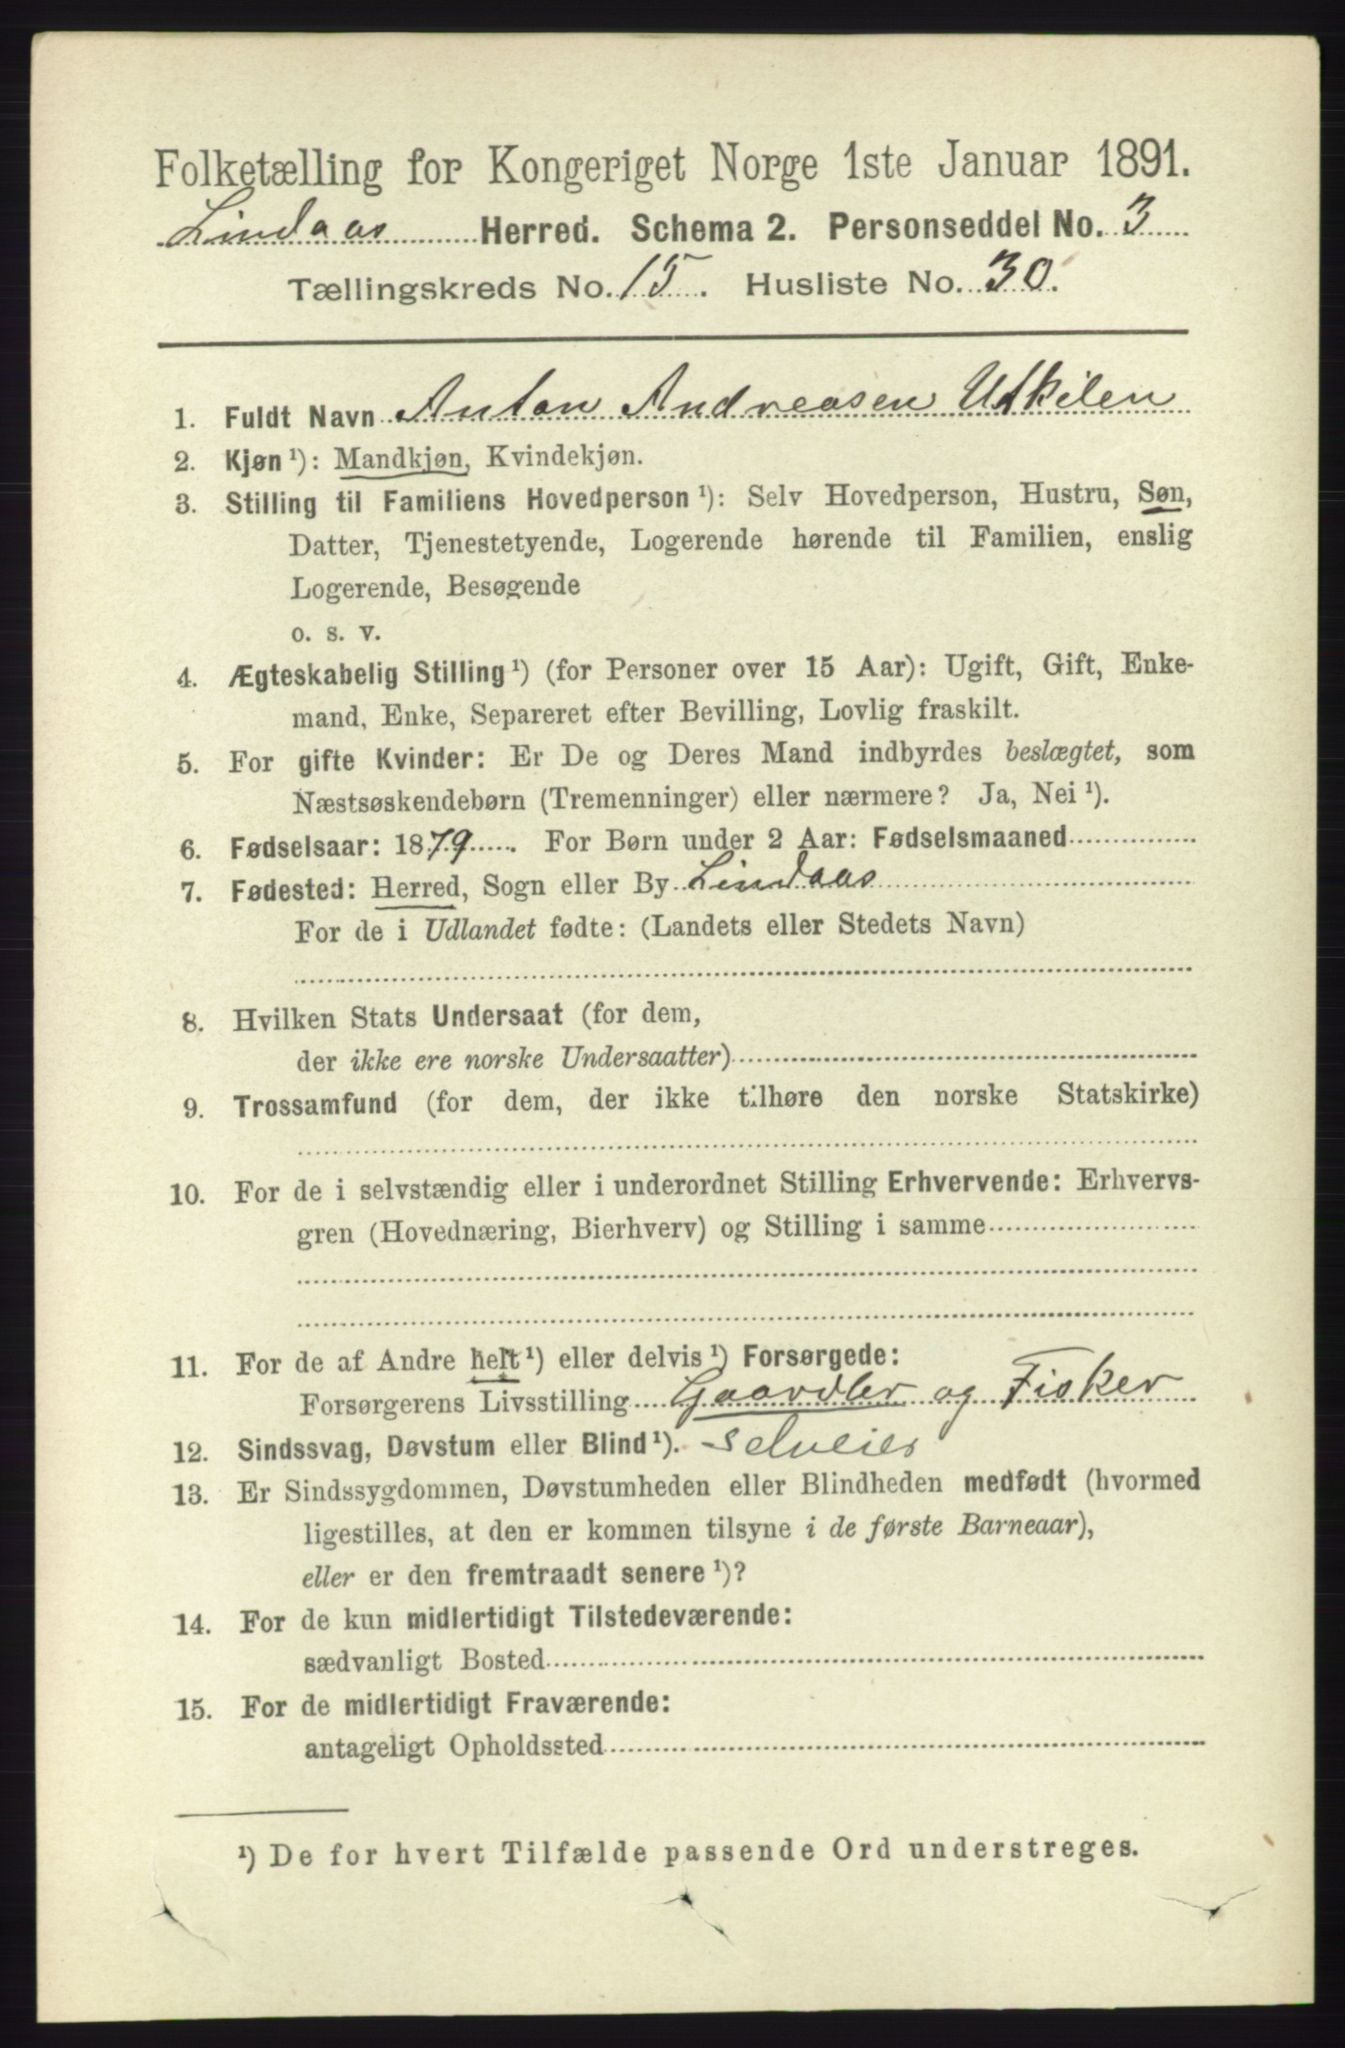 Folketælling for Kongeriget Norge 1ste Januar 1891.
Lindaas Herred. Schema 2. Personseddel No. 3
Tællingskreds No. 15. Husliste No. 30.
1. Fuldt Navn Anton Andreasen Utkilen
2. Kjøn ¹): Mandkjøn, Kvindekjøn.
3. Stilling til Familiens Hovedperson ¹): Selv Hovedperson, Hustru, Søn,
Datter, Tjenestetyende, Logerende hørende til Familien, enslig
Logerende, Besøgende
o. s. v.
4. Ægteskabelig Stilling ¹) (for Personer over 15 Aar): Ugift, Gift, Enke-
mand, Enke, Separeret efter Bevilling, Lovlig fraskilt.
5. For gifte Kvinder: Er De og Deres Mand indbyrdes beslægtet, som
Næstsøskendebørn (Tremenninger) eller nærmere? Ja, Nei ¹).
6. Fødselsaar: 1879. For Børn under 2 Aar: Fødselsmaaned
7. Fødested: Herred, Sogn eller By Lindaas
For de i Udlandet fødte: (Landets eller Stedets Navn)
8. Hvilken Stats Undersaat (for dem,
der ikke ere norske Undersaatter)
9. Trossamfund (for dem, der ikke tilhøre den norske Statskirke)
10. For de i selvstændig eller i underordnet Stilling Erhvervende: Erhvervs-
gren (Hovednæring, Bierhverv) og Stilling i samme
11. For de af Andre helt ¹) eller delvis ¹) Forsørgede:
Forsørgerens Livsstilling Gaardbr og Fisker
12. Sindssvag, Døvstum eller Blind ¹). Selveier
13. Er Sindssygdommen, Døvstumheden eller Blindheden medfødt (hvormed
ligestilles, at den er kommen tilsyne i de første Barneaar),
eller er den fremtraadt senere ¹)?
14. For de kun midlertidigt Tilstedeværende:
sædvanligt Bosted
15. For de midlertidigt Fraværende:
antageligt Opholdssted
¹) De for hvert Tilfælde passende Ord understreges.